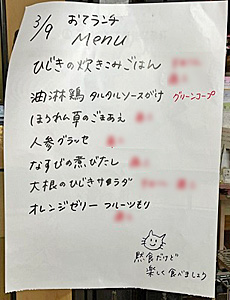 3/9 おてランチ
Menu
ひじきの炊きこみごはん
油淋鶏 タルタルソースがけ グリーンコープ
ほうれん草のごまあえ
人参グラッセ
なすびの煮びたし
大根のひじきサラダ
オレンジゼリー フルーツもり
黙食だけど
楽しく食べましょう